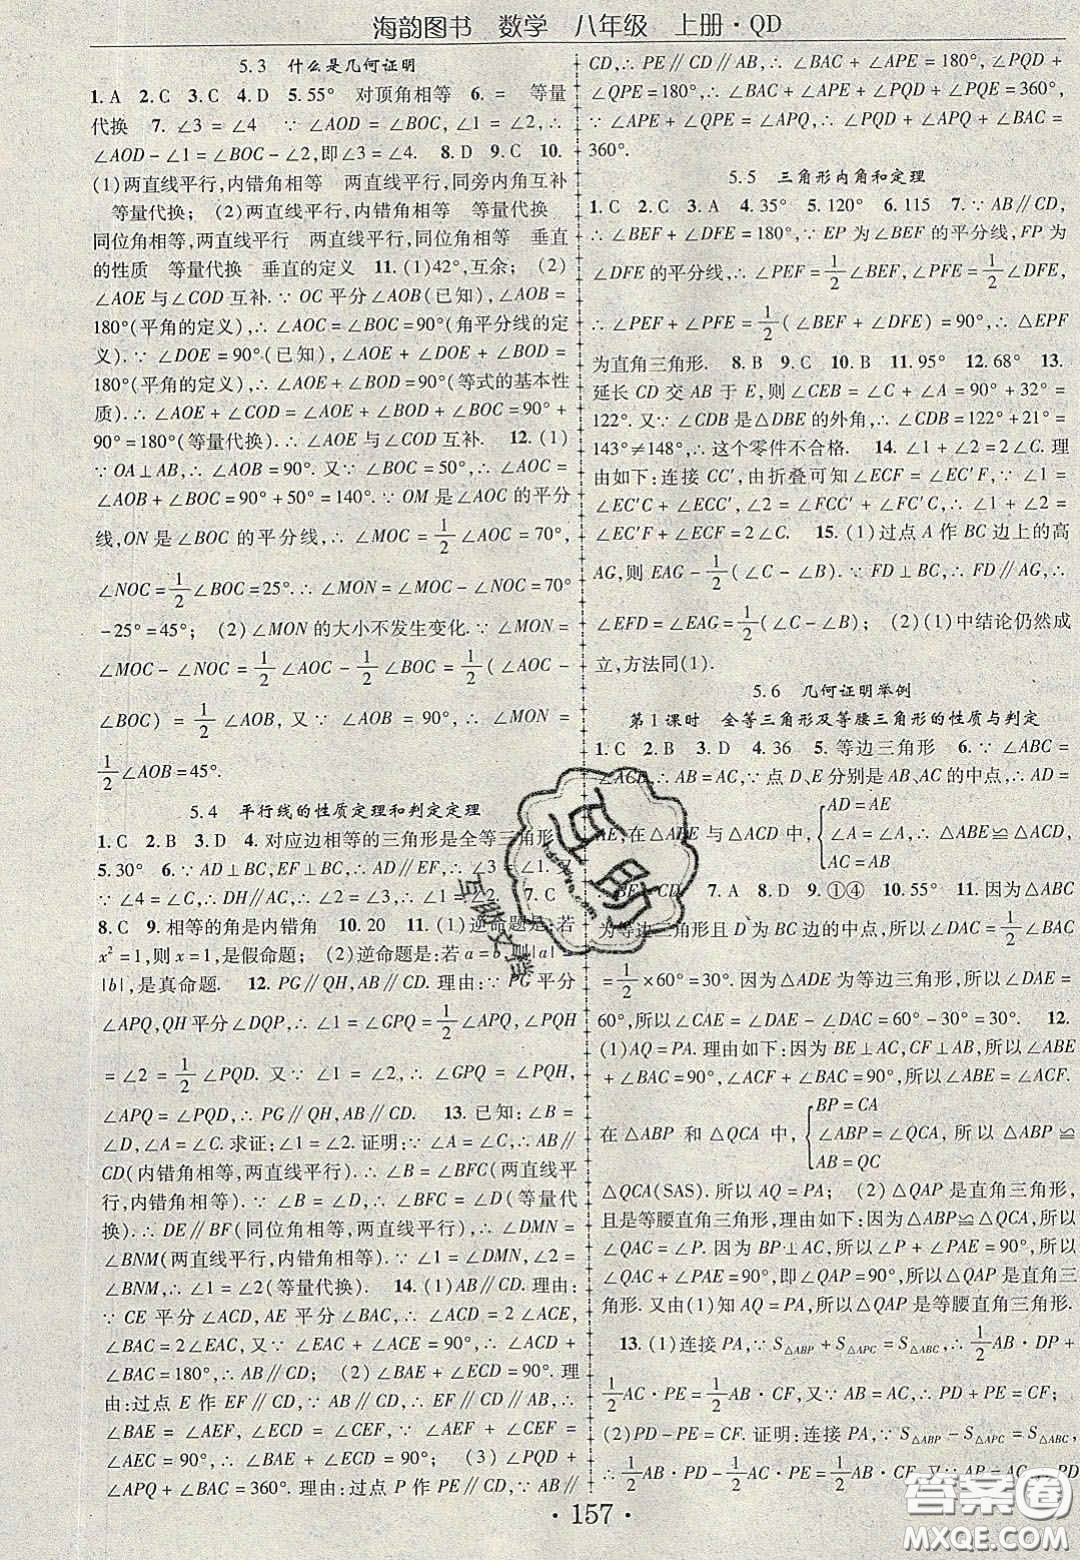 海韵图书 数学 八年级 上册·QD
5.3 什么是几何证明
1.A 2.C 3.C 4.D 5.55° 对顶角相等 6.= 等量
代换 7.∠3=∠4 ∵∠AOD=∠BOC,∠1=∠2,∴
∠AOD-∠1=∠BOC-∠2,即∠3=∠4. 8.D 9.C 10.
(1)两直线平行,内错角相等 两直线平行,同旁内角互补
等量代换;(2)两直线平行,内错角相等 等量代换
同位角相等,两直线平行 两直线平行,同位角相等 垂直
的性质 等量代换 垂直的定义 11.(1)42°,互余;(2)
∠AOE与∠COD互补.∵OC平分∠AOB(已知),∠AOB=
180°(平角的定义),∴∠AOC=∠BOC=90°(角平分线的定
义).∵∠DOE=90°(已知),∴∠AOE+∠DOE+∠BOD=
180°(平角的定义),∴∠AOE+∠BOD=90°(等式的基本性
质).∴∠AOE+∠COD=∠AOE+∠BOD+∠BOC=90°+
90°=180°(等量代换).∴∠AOE与∠COD互补. 12.(1)
∵OA⊥AB,∴∠AOB=90°.又∵∠BOC=50°,∴∠AOC=
∠AOB+∠BOC=90°+50°=140°.∵OM是∠AOC的平分
线,ON是∠BOC的平分线,∴∠MOC=1/2∠AOC=70°,
∠NOC=1/2∠BOC=25°.∴∠MON=∠MOC-∠NOC=70°
-25°=45°;(2)∠MON的大小不发生变化.∵∠MON=
∠MOC-∠NOC=1/2∠AOC-1/2∠BOC=1/2(∠AOC-
∠BOC)=1/2∠AOB,又∵∠AOB=90°,∴∠MON=
1/2∠AOB=45°.
5.4 平行线的性质定理和判定定理
1.C 2.B 3.D 4.对应边相等的三角形是全等三角形
5.30° 6.∵AD⊥BC,EF⊥BC,∴AD∥EF,∴∠3=∠1.又
∵∠4=∠C,∴DH∥AC,∴∠2=∠3,∴∠1=∠2 7.C
8.C 9.相等的角是内错角 10.20 11.(1)逆命题是:若
x²=1,则x=1,是假命题.(2)逆命题是:若a=b,则|a|=
|b|,是真命题. 12.PG∥QH,AB∥CD.理由:∵PG平分
∠APQ,QH平分∠DQP,∴∠1=∠GPQ=1/2∠APQ,∠PQH
=∠2=1/2∠PQD.又∵∠1=∠2,∴∠GPQ=∠PQH,
∠APQ=∠PQD,∴PG∥QH,AB∥CD. 13.已知:∠B=
∠D,∠A=∠C.求证:∠1=∠2.证明:∵∠A=∠C,∴AB∥
CD(内错角相等,两直线平行).∴∠B=∠BFC(两直线平
行,内错角相等).∵∠B=∠D,∴∠BFC=∠D(等量代
换).∴DE∥BF(同位角相等,两直线平行),∴∠DMN=
∠BNM(两直线平行,内错角相等).∵∠1=∠DMN,∠2=
∠BNM,∴∠1=∠2(等量代换). 14.(1)AB∥CD.理由:
∵CE平分∠ACD,AE平分∠BAC,∴∠ACD=2∠ACE,
∠BAC=2∠EAC,又∵∠EAC+∠ACE=90°,∴∠ACD+∠BAC=
180°,∴AB∥CD;(2)∠BAE+∠ECD=90°.理
由:过点E作EF∥CD,∵AB∥CD,∴EF∥AB∥CD,∴
∠BAE=∠AEF,∠ECD=∠CEF.∵∠AEF+∠CEF=
∠AEC=90°,∴∠BAE+∠ECD=90°;(3)∠PQD+
∠APQ+∠BAC=360°.理由:过点P作PE∥AB,∵AB∥
CD,∴PE∥CD∥AB,∴∠BAC+∠APE=180°,∠PQD+
∠QPE=180°,∴∠BAC+∠APE+∠PQD+∠PQE=360°,
∵∠APE+∠QPE=∠APQ,∴∠PQD+∠APQ+∠BAC=
360°.
5.5 三角形内角和定理
1.C 2.C 3.A 4.35° 5.120° 6.115 7.∵AB∥CD,
∴∠BEF+∠DFE=180°,∵EP为∠BEF的平分线,FP为
∠DFE的平分线,∴∠PEF=1/2∠BEF,∠PFE=1/2∠DFE,
∴∠PEF+∠PFE=1/2(∠BEF+∠DFE)=90°,∴△EPF
为直角三角形. 8.B 9.C 10.B 11.95° 12.68° 13.
延长CD交AB于E,则∠CEB=∠C+∠A=90°+32°=
122°.又∵∠CDB是△DBE的外角,∴∠CDB=122°+21°=
143°≠148°,∴这个零件不合格. 14.∠1+∠2=2∠C.理
由如下:连接CC′,由折叠可知∠ECF=∠EC′F ∵∠1=
∠EC′C+∠ECC′,∠2=∠FCC′+∠FC′C,∴∠1+∠2=
∠EC′F+∠ECF=2∠C. 15.(1)过点A作BC边上的高
AG,则EAG-1/2(∠C-∠B).∵FD⊥BC,∴FD∥AG,∴
∠EFD=∠EAG=1/2(∠C-∠B);(2)(1)中结论仍然成
立,方法同(1).
5.6 几何证明举例
第1课时 全等三角形及等腰三角形的性质与判定
1.C 2.B 3.D 4.36 5.等边三角形 6.∵∠ABC=
∠ACB,∴AB=AC.∵点D、E分别是AB、AC的中点,∴AD=
AE,在△ABE与△ACD中,{AD=AE ∠A=∠A AB=AC,∴△ABE≌△ACD,
∴BE=CD. 7.A 8.D 9.①④ 10.55° 11.因为△ABC
为等边三角形且D为BC边的中点,所以∠DAC=1/2∠BAC
=1/2×60°=30°.因为△ADE为等边三角形,所以∠DAE=
60°,所以∠CAE=∠DAE-∠DAC=60°-30°=30°. 12.
(1)AQ=PA.理由如下:因为BE⊥AC,CF⊥AB,所以∠ABE
+∠BAC=90°,∠ACF+∠BAC=90°,所以∠ABE=∠ACF.
在△ABP和△QCA中,{BP=CA ∠ABP=∠QCA, AB=QC 所以△ABP≌
△QCA(SAS).所以AQ=PA;(2)△QAP是直角三角形,
且是等腰直角三角形,理由如下:因为△ABP≌△QCA,所以
∠QAC=∠P.因为BP⊥AC,所以∠P+∠PAE=90°,所以
∠QAC+∠PAE=90°,即∠QAP=90°,所以△QAP是直角三
角形.又由(1)知AQ=PA,所以△QAP是等腰直角三角形.
13.(1)连接PA,∵S△ABP+S△APC=S△ABC,∴1/2AB·DP+
1/2AC·PE=1/2AB·CF,又∵AB=AC,∴PD+PE=CF;
(2)PD-PE=CF.证明:连接PA,∵S△ABP-S△APC=S△ABC,
∴1/2AB·PD-1/2AC·PE=1/2AB·CF,又
·157·
互助
互助文档
答案圈
MXQE.COM